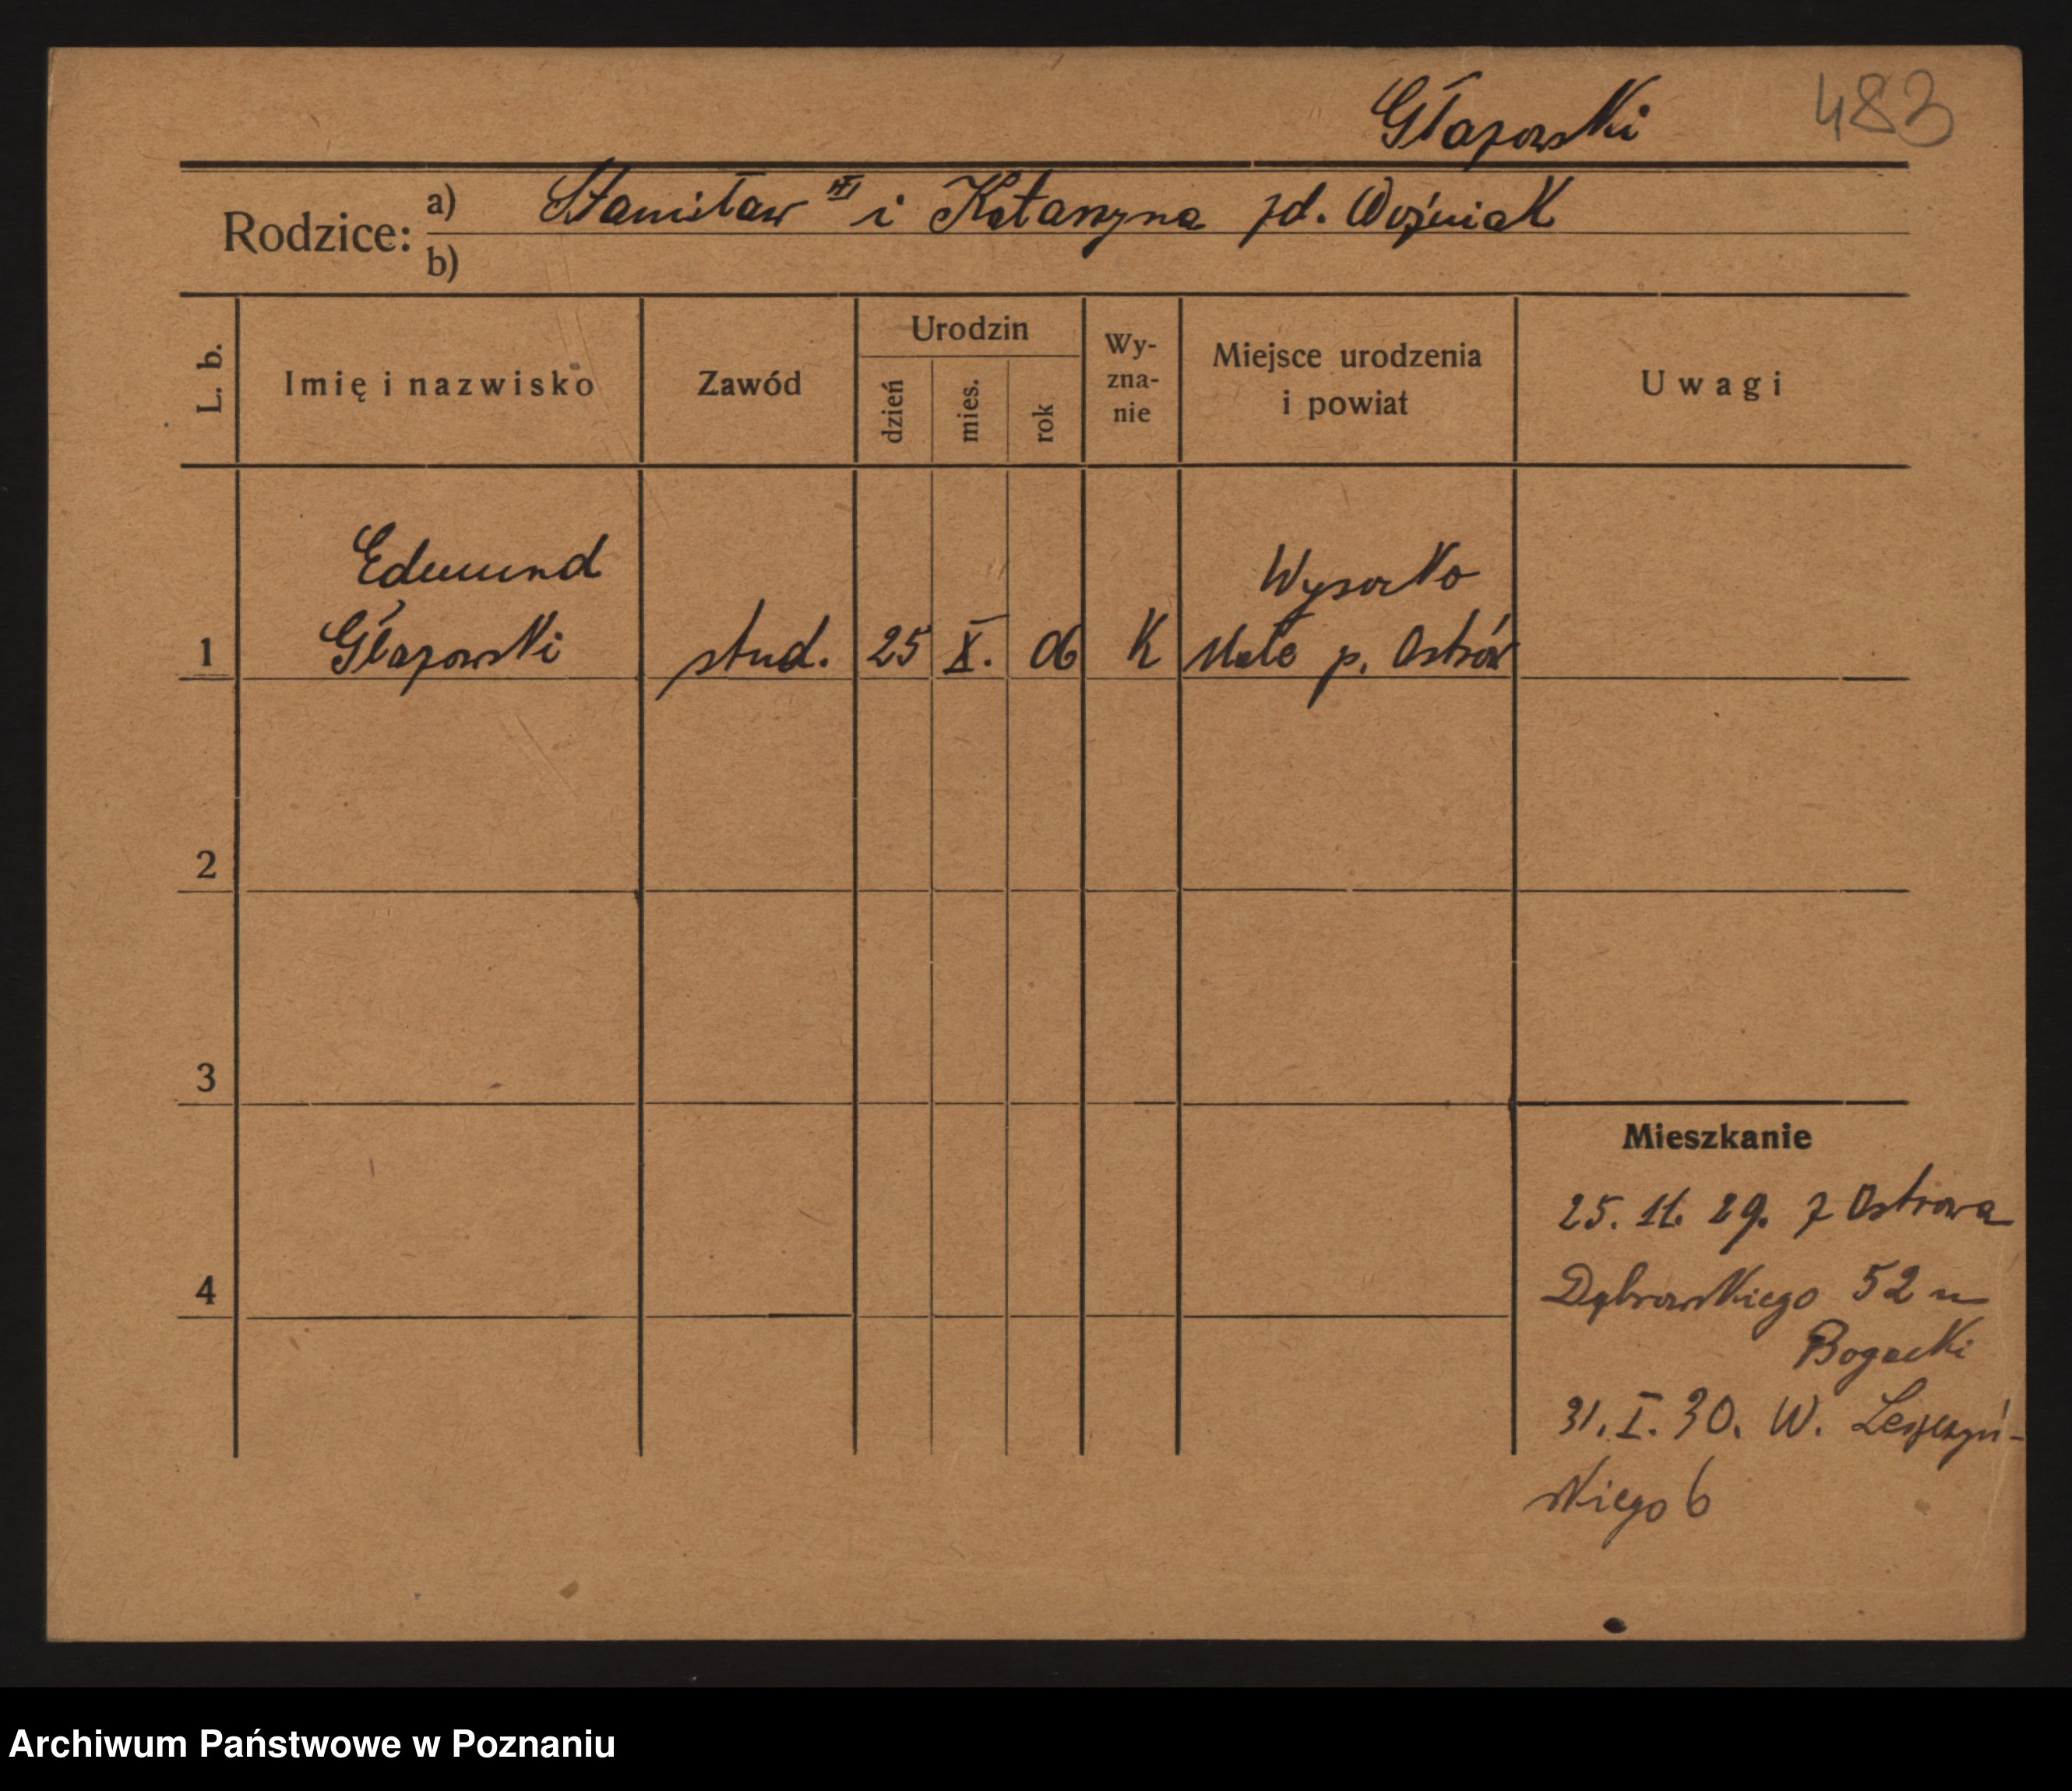 Głazowski 483
Rodzice: a) Stanisław i Katarzyna zd. Woźniak
b)
L. b. Imię i nazwisko Zawód Urodzin dzień mies. rok Wy-zna-nie Miejsce urodzenia i powiat Uwagi
Edmund Wysocko
1 Głazowski stud. 25 X. 06 K Małe p. Ostrów
2
3
Mieszkanie
25. 11. 29. z Ostrowa
4
Dąbrowskiego 52 u
Bogacki
31. I. 30. W. Leszczyń-
skiego 6
Archiwum Państwowe w Poznaniu